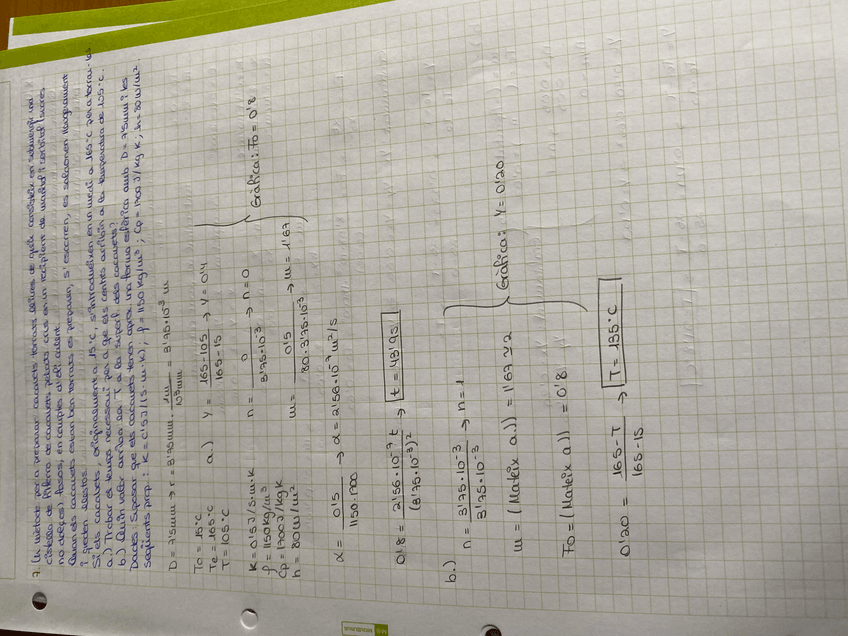 7. Un mètode per a preparar cacauets torrats lliures de greix consisteix en submergir una
cistella de filferro de cacauets pelats crus en un recipient de manitol i sorbitol (sucres
no dolços) fosos, en comptes d'oli calent.
Quan els cacauets estan ben torrats es preparan, s'escorren, es salaonen lleugerament
i queden solets.
Si els cacauets, originalment a 15°C, s'introdueixen en un medi a 165°C per a torrar-los
a) Trobar el temps necessari per a que els centres arribin a la temperatura de 105°C.
b) Quin valor arriba la T a la superf. dels cacauets?
Dades: Suposar que els cacauets tenen aprox. una forma esfèrica amb D = 7'5mm i les
següents prop.: K = 0'5J/(s·m·K); ρ = 1150 kg/m³; Cp = 1700J/kg K; h = 80 W/m².
D = 7'5mm → r = 3'75mm · 1m / 10³mm = 3'75·10⁻³ m
T₀ = 15°C
Te = 165°C
T = 105°C
K = 0'5J/s·m·K
ρ = 1150kg/m³
Cp = 1700J/kg K
h = 80W/m²
a.) Y = 165-105 / 165-15 → Y = 0'4
n = 0 / 3'75·10⁻³ → n = 0
m = 0'5 / 80·3'75·10⁻³ → m = 1'67
Gràfica: Fo = 0'8
α = 0'5 / 1150·1700 → α = 2'56·10⁻⁷ m²/s
0'8 = 2'56·10⁻⁷ t / (3'75·10⁻³)² → t = 43'9s
b.) n = 3'75·10⁻³ / 3'75·10⁻³ → n = 1
m = (Mateix a)) = 1'67 ≃ 2
Fo = (Mateix a)) = 0'8
Gràfica: Y = 0'20
0'20 = 165-T / 165-15 → T = 135°C